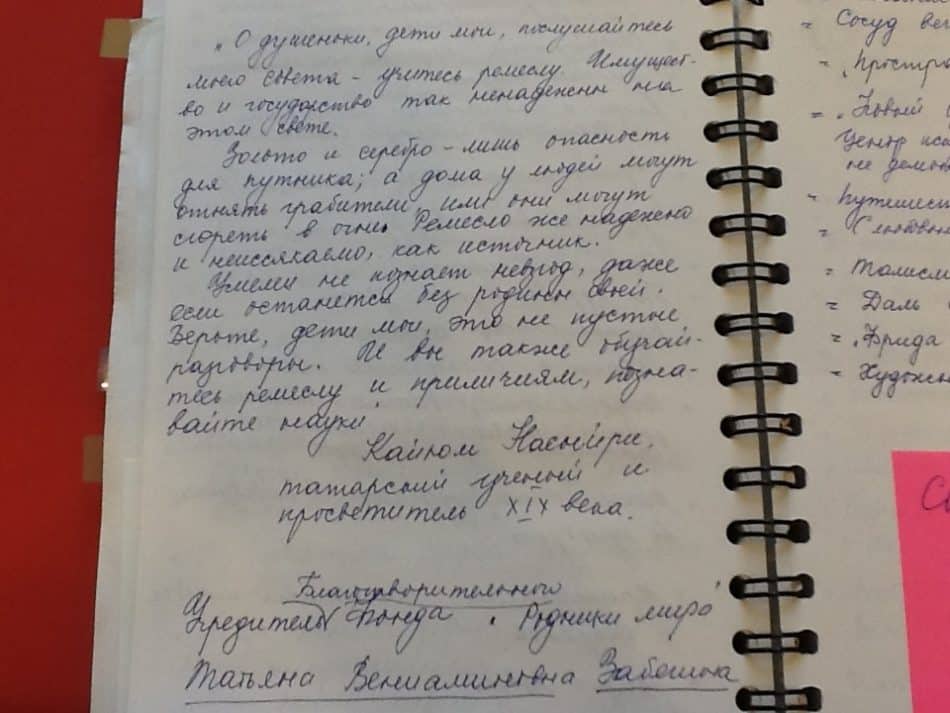 „О душеньки, дети мои, послушайтесь
моего совета - учитесь ремеслу. Имущест-
во и государство так ненадежны на
этом свете.
Золото и серебро - лишь опасность
для путника; а дома у людей могут
отнять грабители, или они могут
сгореть в огне. Ремесло же надежно
и неиссякаемо, как источник.
Умелец не познает невзгод, даже
если останется без родины своей.
Верьте, дети мои, это не пустые
разговоры. И вы также обучай-
тесь ремеслу и приличиям, позна-
вайте науки"
Кайюм Насыйри,
татарский ученый и
просветитель XIX века.
Благотворительного
Учредитель Фонда "Родники мира"
Татьяна Вениаминовна
= Сосуд
= "
= "Новый
Центр
не
=
=
=
= Даль
= "Фрида
=
С